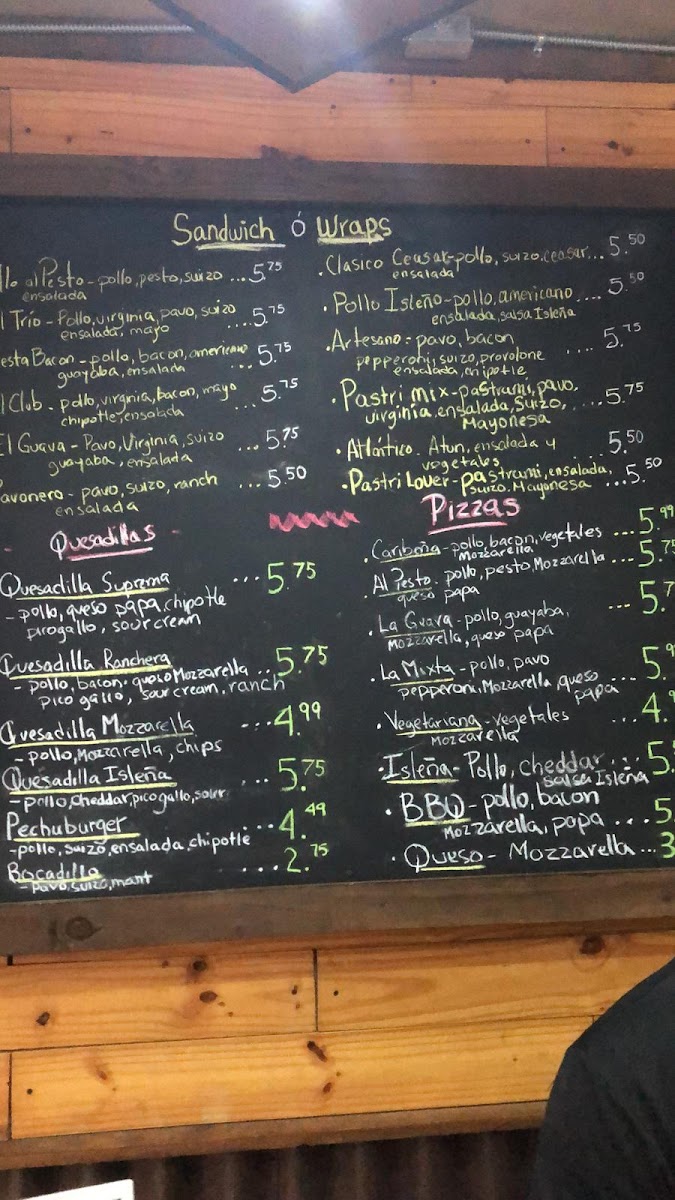 Sandwich ó Wraps
llo al Pesto - pollo, pesto, suizo ... 5.75
ensalada
l Trío - Pollo, virginia, pavo, suizo
ensalada, mayo .... 5.75
esta Bacon - pollo, bacon, americano
guayaba, ensalada ... 5.75
l Club - pollo, virginia, bacon, mayo
chipotle, ensalada ... 5.75
El Guava - Pavo, Virginia, suizo
guayaba, ensalada ... 5.75
avonero - pavo, suizo, ranch ... 5.50
ensalada
. Clasico Ceasar - pollo, suizo, ceasar ... 5.50
ensalada
. Pollo Isleño - pollo, americano .... 5.50
ensalada, salsa Isleña
. Artesano - pavo, bacon
pepperoni, suizo, provolone .... 5.75
ensalada, chipotle
. Pastri mix - pastrami, pavo,
virginia, ensalada, Suizo, .... 5.75
Mayonesa
. Atlántico. Atun, ensalada y .... 5.50
vegetales
. Pastri Lover - pastrami, ensalada,
suizo, Mayonesa ... 5.50
- Quesadillas -
Quesadilla Suprema ... 5.75
- pollo, queso papa, chipotle
picogallo, sour cream
Quesadilla Ranchera ... 5.75
- pollo, bacon, queso Mozzarella
pico gallo, sour cream, ranch
Quesadilla Mozzarella ... 4.99
- pollo, Mozzarella, chips
Quesadilla Isleña ... 5.75
- pollo, cheddar, picogallo, sour
Pechuburger ... 4.49
- pollo, suizo, ensalada, chipotle
Bocadillo .... 2.75
- pavo, suizo, mant
Pizzas
. Caribeña - pollo, bacon, vegetales ... 5.99
Mozzarella
Al Pesto - pollo, pesto, Mozzarella ... 5.75
queso papa
. La Guava - pollo, guayaba, ... 5.7
Mozzarella, queso papa
. La Mixta - pollo, pavo ... 5.9
pepperoni, Mozzarella, queso
papa
. Vegetariana - vegetales ... 4.9
Mozzarella
. Isleña - Pollo, cheddar ... 5.
salsa Isleña
. BBQ - pollo, bacon
Mozzarella, papa ... 5.
. Queso - Mozzarella ... 3